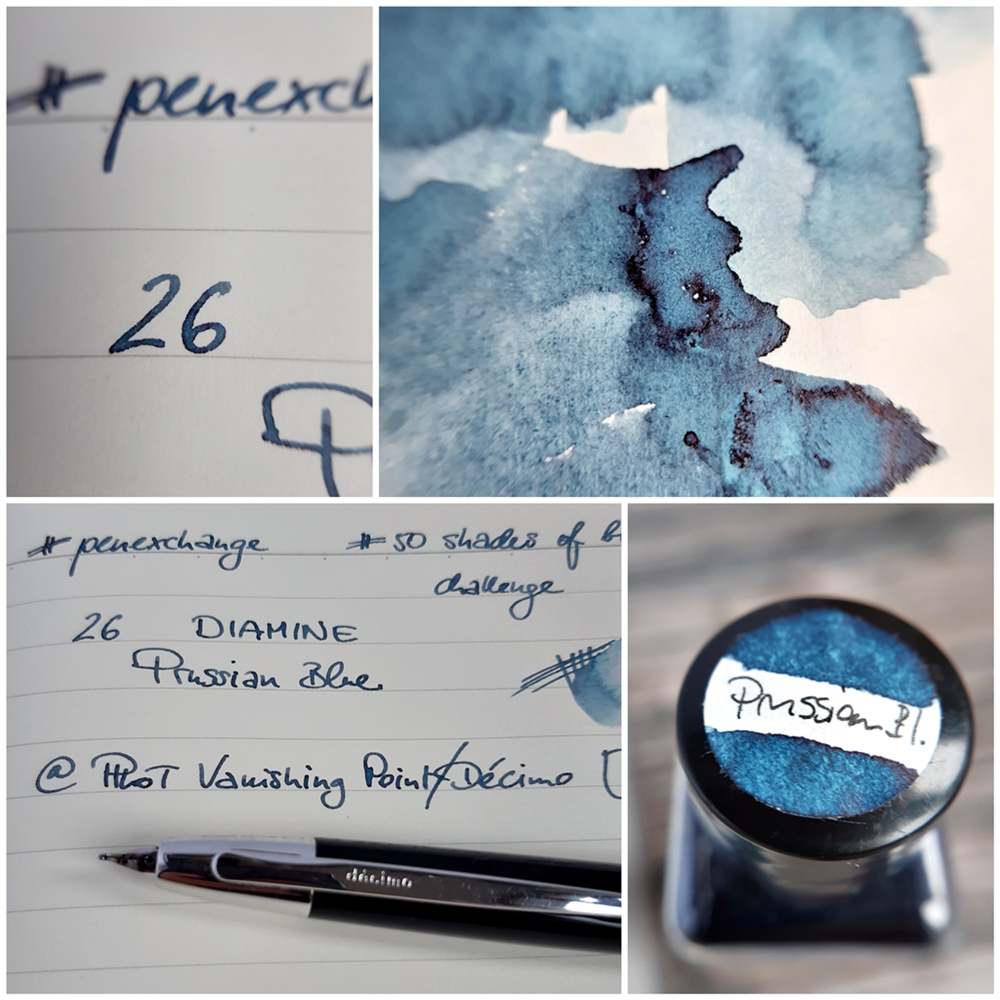 # penexch
26
P
# penexchange #50 shades of b
challenge
26 DIAMINE
Prussian Blue
@ PiLoT Vanishing Point/Décimo
décimo
Prussian Bl.